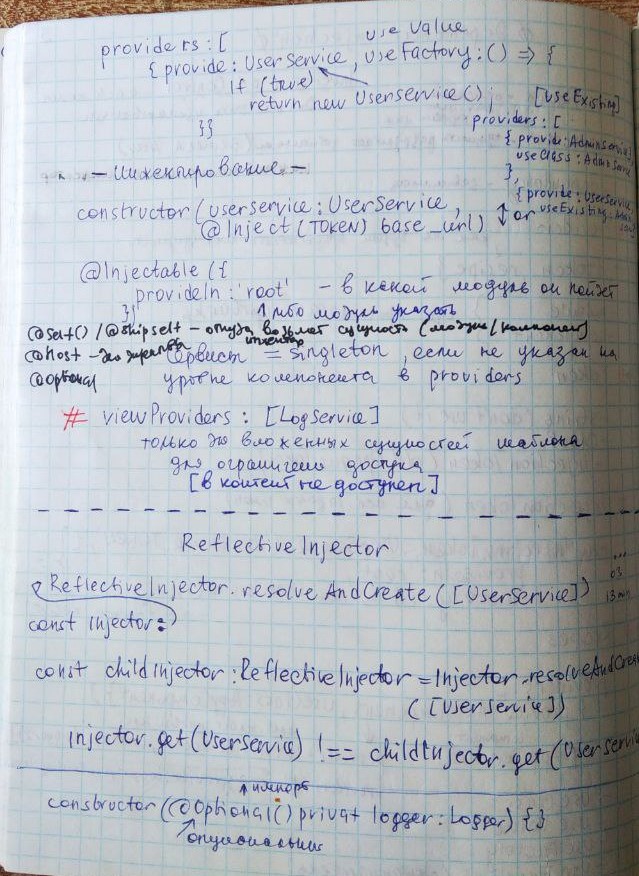 use Value
providers : [
{ provide : UserService , useFactory : () => {
if (true)
return new UserService() ;
}}
[useExisting]
providers : [
{ provide : AdminService
useClass : AdminServ
},
{ provide : UserService
useExisting :
- Инжектирование -
constructor ( userservice : UserService ,
@Inject (TOKEN) base_url)
or
@Injectable ({
provideIn : 'root' - в какой модуль он пойдёт
})
либо модуль указать
@Self() / @skipself - откуда возьмет сущность (модуль / компонент)
@Host -
@Optional
инжектор
Сервисы = singleton , если не указан на
уровне компонента в providers
# viewProviders : [LogService]
только вложенных сущностей шаблона
для ограничения доступа
[в контент не доступен]
ReflectiveInjector
ReflectiveInjector. resolveAndCreate ([UserService])
const Injector =
03
13 мин
const childInjector : ReflectiveInjector = Injector.resolveAndCrea
([UserService])
Injector.get(UserService) !== childInjector.get(UserServi
импорт
constructor (@Optional() privat logger : Logger) {}
опциональный